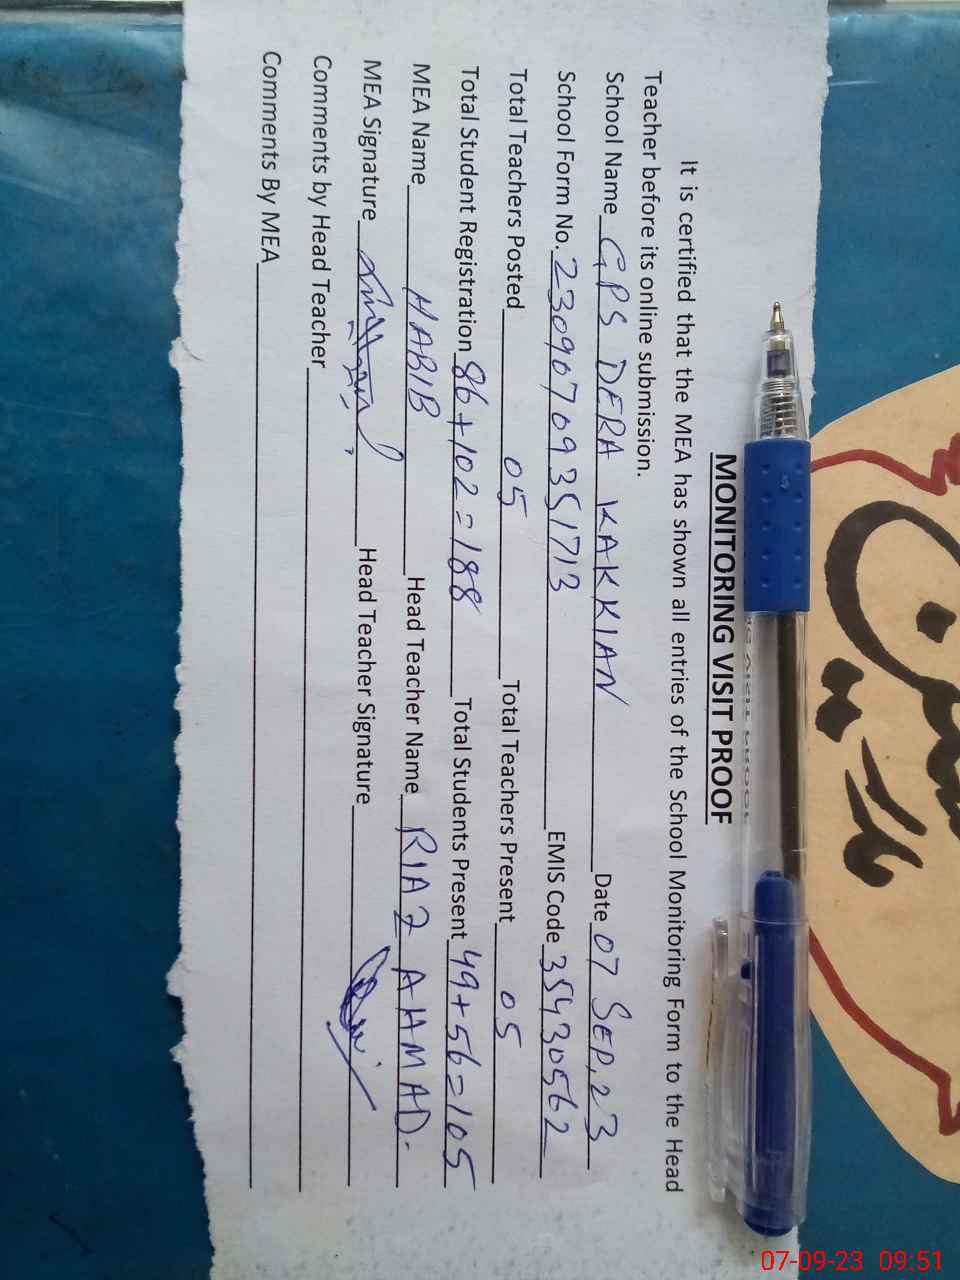 MONITORING VISIT PROOF
It is certified that the MEA has shown all entries of the School Monitoring Form to the Head
Teacher before its online submission.
School Name GPS DERA KAKKIAN Date 07 SEP, 23
School Form No. 23090709351713 EMIS Code 35430562
Total Teachers Posted 05 Total Teachers Present 05
Total Student Registration 86+102=188 Total Students Present 49+56=105
MEA Name HABIB Head Teacher Name RIAZ AHMAD.
MEA Signature Head Teacher Signature
Comments by Head Teacher
Comments By MEA
07-09-23 09:51